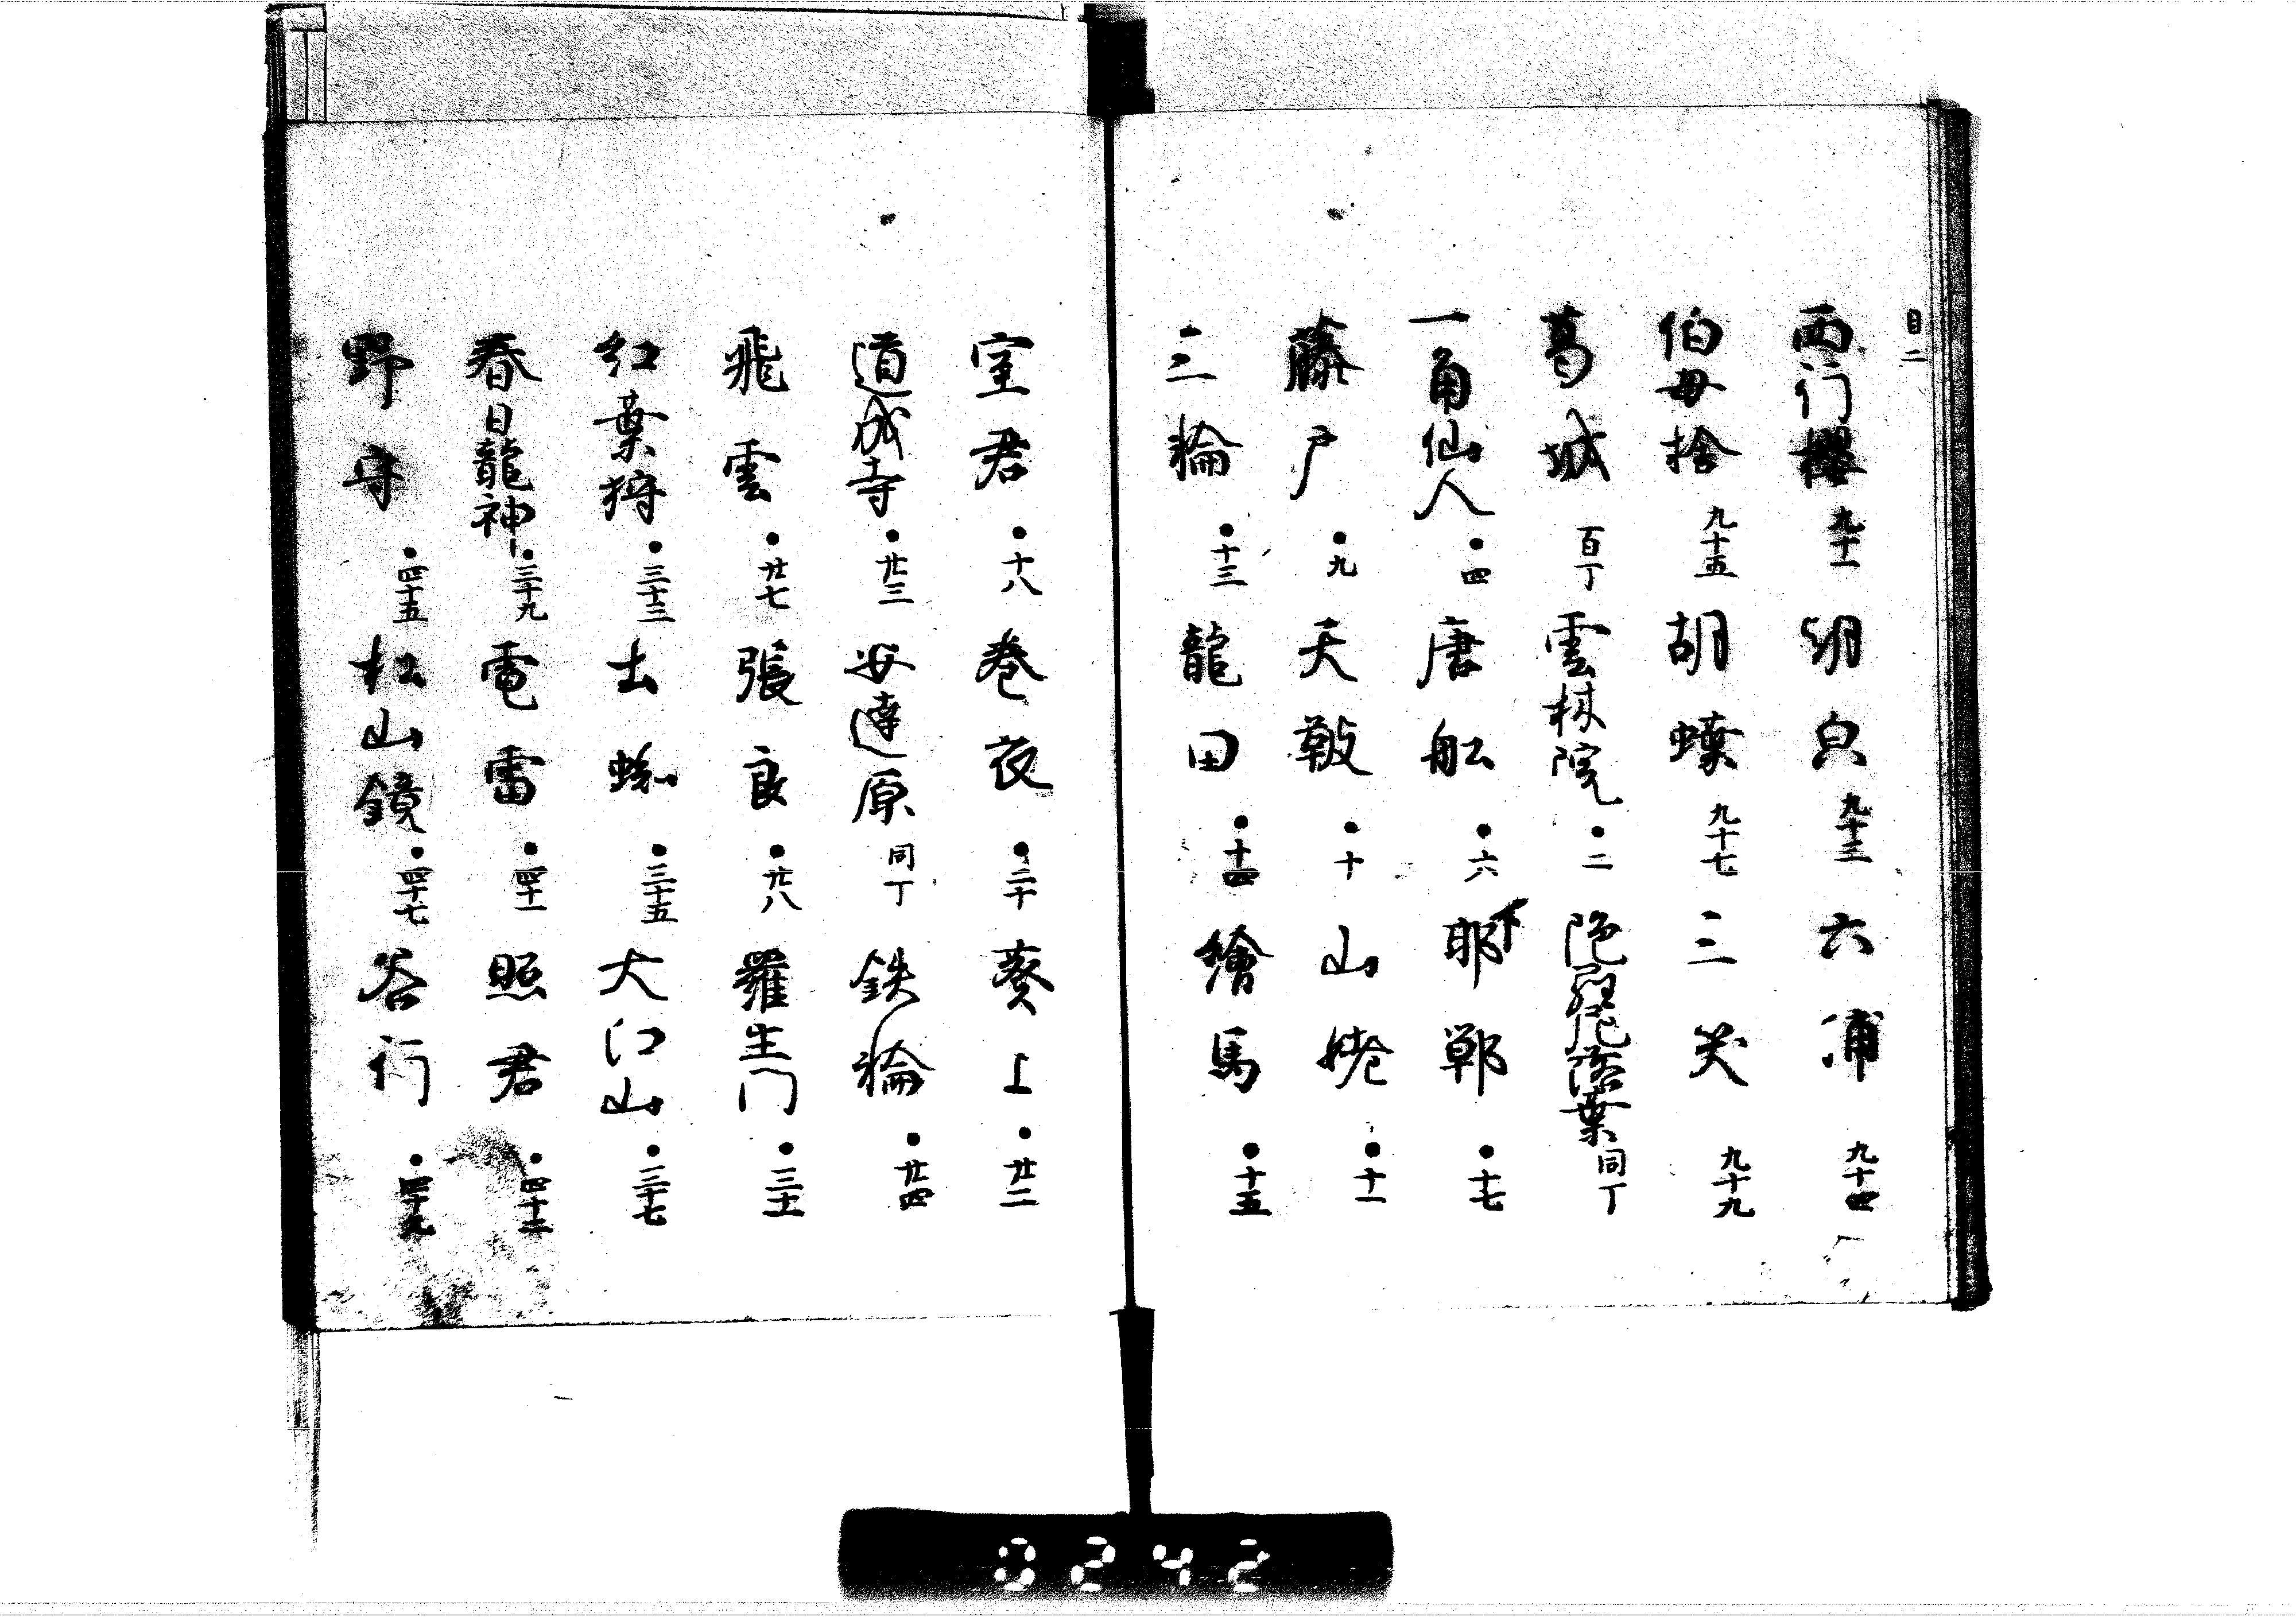 目二
西行櫻 九十一 胡□ 九十三 六浦 九十四
伯母捨 九十五 胡蝶 九十七 三笑 九十九
葛城 百丁 雲林院 ●二 陀羅尼落葉 同丁
一角仙人 ●四 唐舩 ●六 邯鄲 ●十七
藤戸 ●九 天皷 ●十 山姥 ●十一
三輪 ●十三 龍田 ●十四 繪馬 ●十五
室君 ●十八 巻夜 ●二十 葵上 ●廿二
道成寺 ●廿三 安達原 同丁 鉄輪 ●廿四
飛雲 ●廿七 張良 ●廿八 羅生門 ●三十一
紅葉狩 ●三十三 土蜘 ●三十五 大江山 ●三十七
春日龍神 ●三十九 電雷 ●四十一 照君 ●四十三
野守 ●四十五 松山鏡 ●四十七 谷行 ●四十九
3242